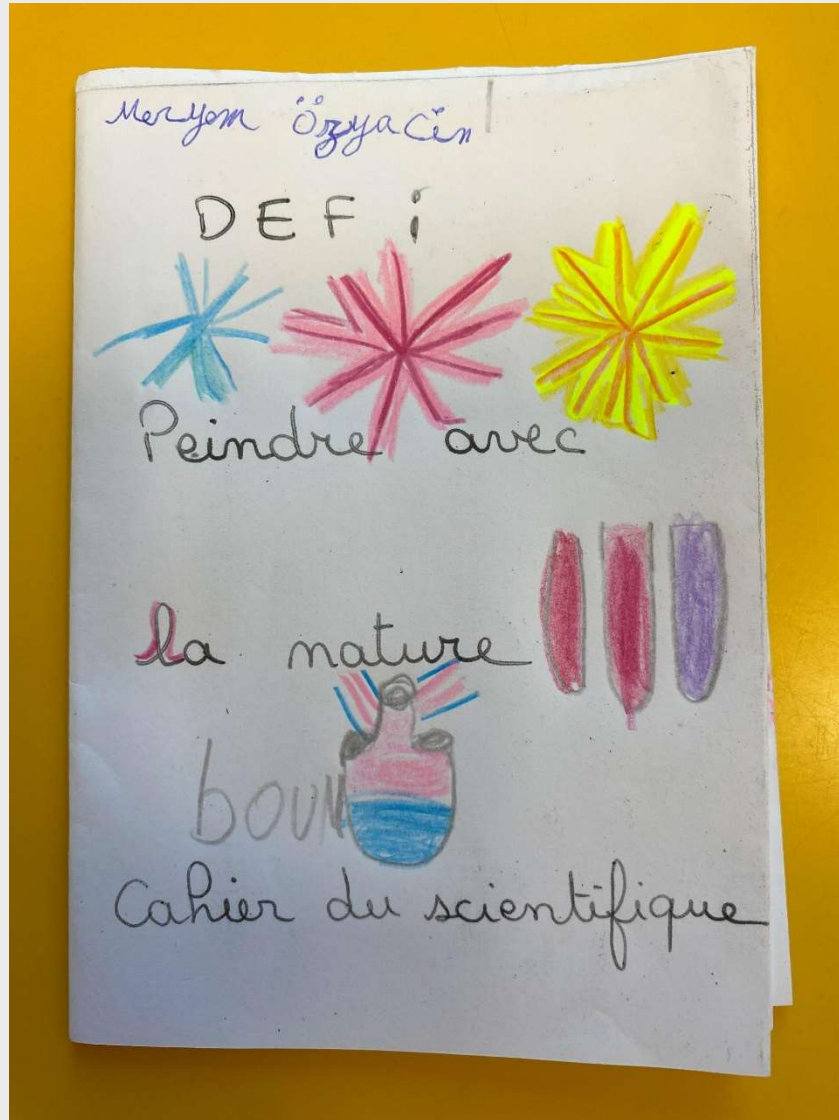 Meryem Özyacin
DEFi
Peindre avec
la nature
boum
Cahier du scientifique